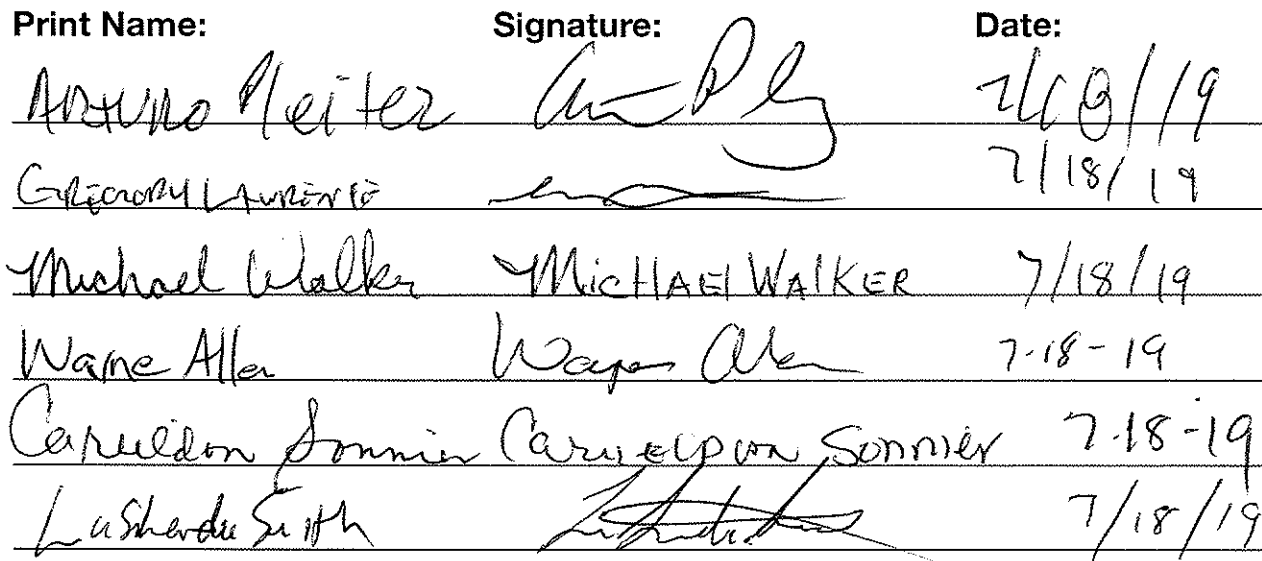 Print Name: Signature: Date:
ARTURO Pleitez 7/18/19
GREGORY LAWRENCE 7/18/19
Michael Walker MICHAEL WALKER 7/18/19
Wayne Allen Wayne Allen 7-18-19
Sonnier Sonnier 7-18-19
Smith 7/18/19